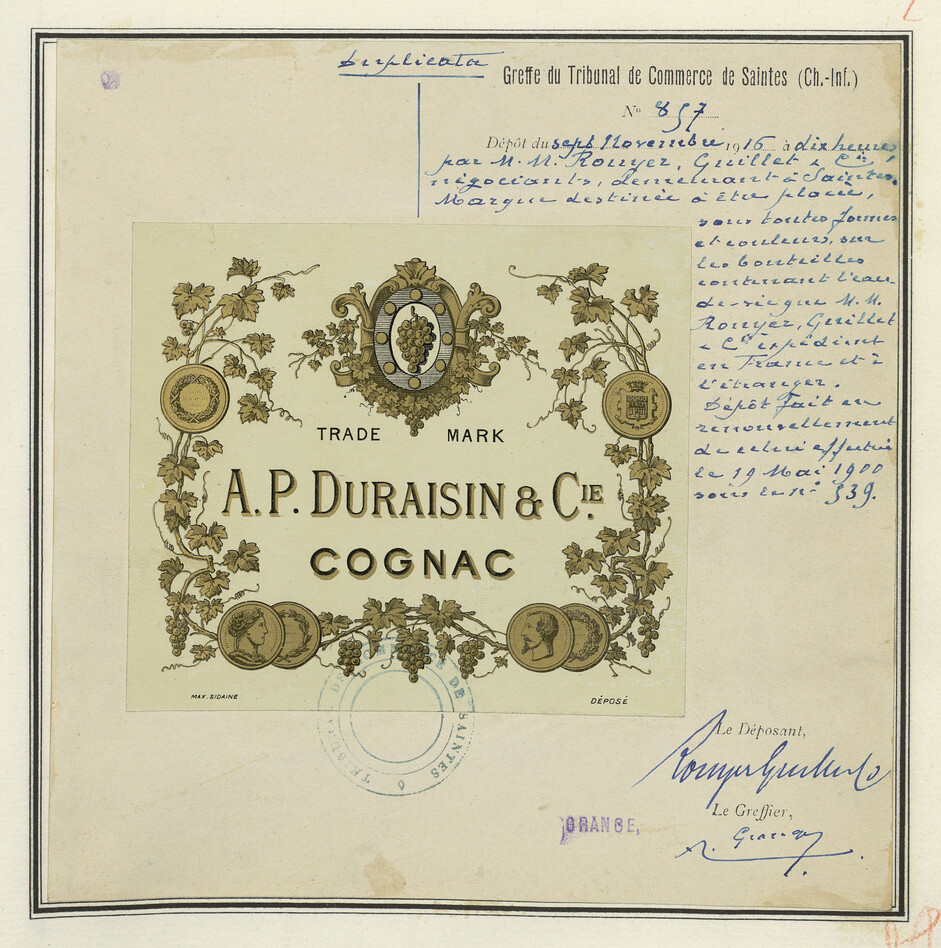 Duplicata
Greffe du Tribunal de Commerce de Saintes (Ch.-Inf.)
N° 857
Dépôt du sept Novembre 1916 à dix heures
par M. M. Rouyer, Guillet & Cie,
négociants, demeurant à Saintes.
Marque destinée à être placée,
sous toutes formes
et couleurs, sur
les bouteilles
contenant l'eau-
de-vie que M. M.
Rouyer, Guillet
& Cie expédient
en France et à
l'étranger.
Dépôt fait en
renouvellement
de celui effectué
le 19 Mai 1900
sous le n° 539.
TRADE MARK
A. P. DURAISIN & CIE.
COGNAC
MAX. SIDAINE
DÉPOSÉ
TRIBUNAL DE COMMERCE DE SAINTES
Le Déposant,
Rouyer Guillet & Co
Le Greffier,
GRANGE,